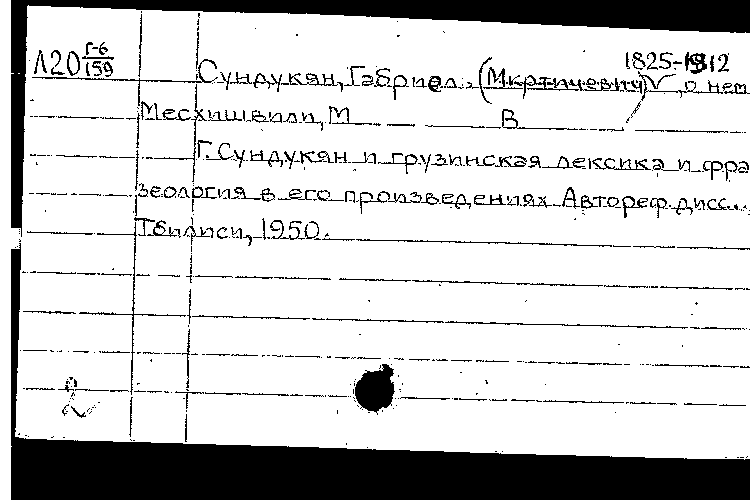 1825-1912
Л20 Г-6/159 Сундукян, Габриел. (Мкртичевич) V, о нем
Месхишвили, М В
Г. Сундукян и грузинская лексика и фра
зеология в его произведениях Автореф. дисс...
Тбилиси, 1950.
2